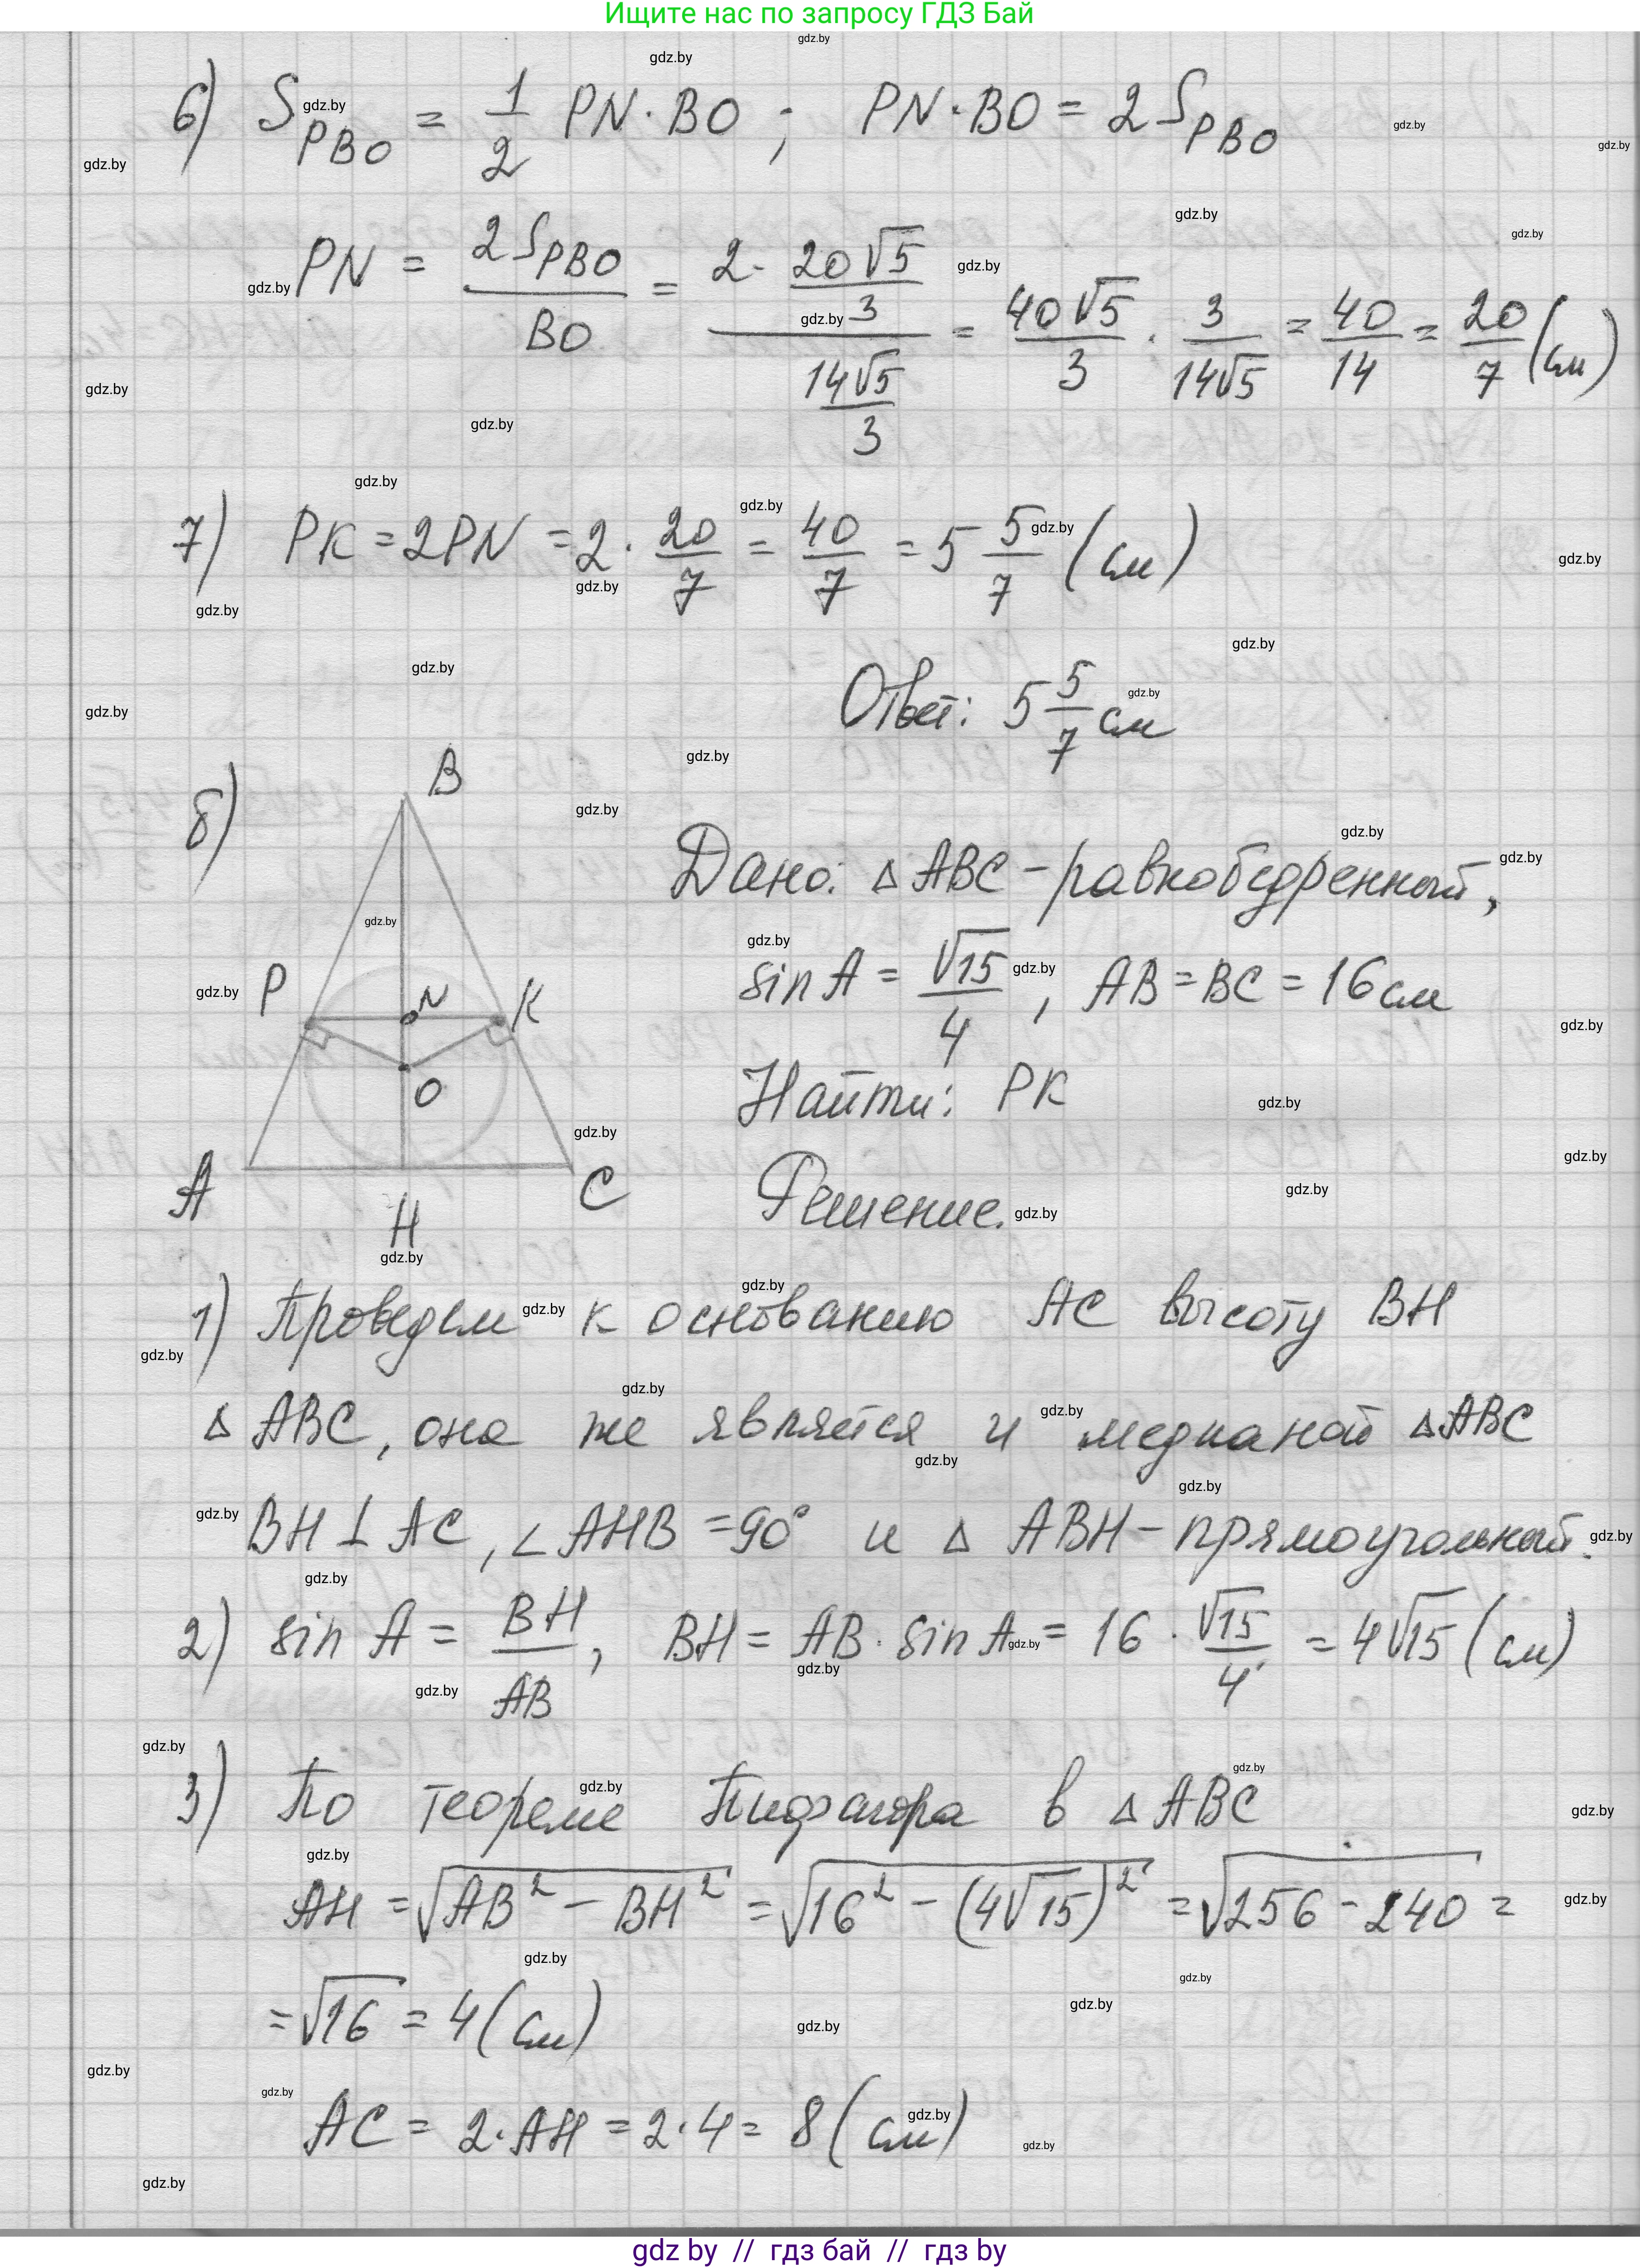 Ищите нас по запросу ГДЗ Бай
6) S_PBO = 1/2 PN · BO ; PN · BO = 2 S_PBO
PN = 2S_PBO / BO = (2 · 20√5/3) / (14√5/3) = 40√5/3 · 3/14√5 = 40/14 = 20/7 (см)
7) PK = 2PN = 2 · 20/7 = 40/7 = 5 5/7 (см)
Ответ: 5 5/7 см
б)
B
P
N
K
O
A
H
C
Дано: △ ABC - равнобедренный,
sin A = √15/4 , AB = BC = 16 см
Найти: PK
Решение.
1) Проведем к основанию AC высоту BH
△ ABC, она же является и медианой △ABC
BH ⊥ AC, ∠ AHB = 90° и △ ABH - прямоугольный.
2) sin A = BH/AB , BH = AB · sin A = 16 · √15/4 = 4√15 (см)
3) По теореме Пифагора в △ ABC
AH = √(AB² - BH²) = √(16² - (4√15)²) = √(256 - 240) =
= √16 = 4 (см)
AC = 2 · AH = 2 · 4 = 8 (см)
gdz by // гдз бай // гдз by